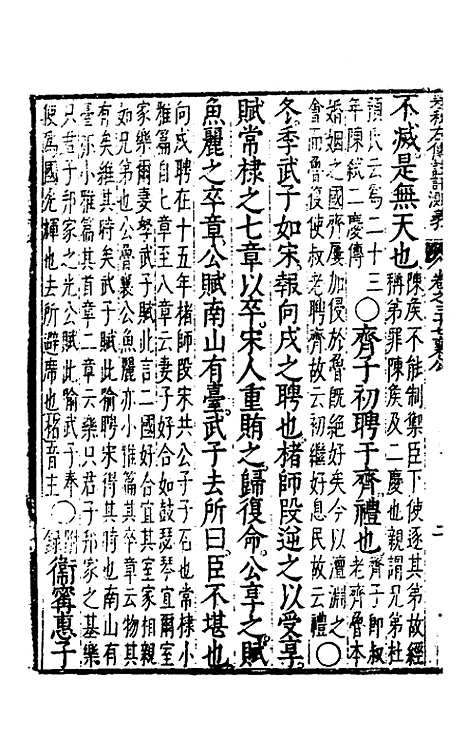 春秋左傳註評測義 卷之三十七襄公 二
不滅是無天也陳侯不能制禦臣下使逐其弟故經
稱弟罪陳侯及二慶也親謂兄弟杜
預氏云爲二十三
年陳殺二慶傳○齊子初聘于齊禮也齊子即叔
老齊魯本
婚姻之國齊屢加侵於魯旣絶好矣今以澶淵之
會而復使叔老聘齊故云初繼好息民故云禮○
冬季武子如宋報向戌之聘也褚師段逆之以受享
賦常棣之七章以卒宋人重賄之歸復命公享之賦
魚麗之卒章公賦南山有臺武子去所曰臣不堪也
向戌聘在十五年褚師段宋共公子子石也常棣小
雅七章至八章云妻子好合如鼓瑟琴宜爾室
家樂爾妻孥武子賦此言二國好合宜其室家相親
如兄弟也公魯襄公魚麗亦小雅篇其卒章云物其
有矣維其時矣武子賦此喻聘宋得其時也南山有
臺亦小雅篇其首章二章云樂只君子邦家之基樂
只君子邦家之光公賦此喻武子奉
使爲國光輝也去所避席也褚音主○附錄衞寧惠子